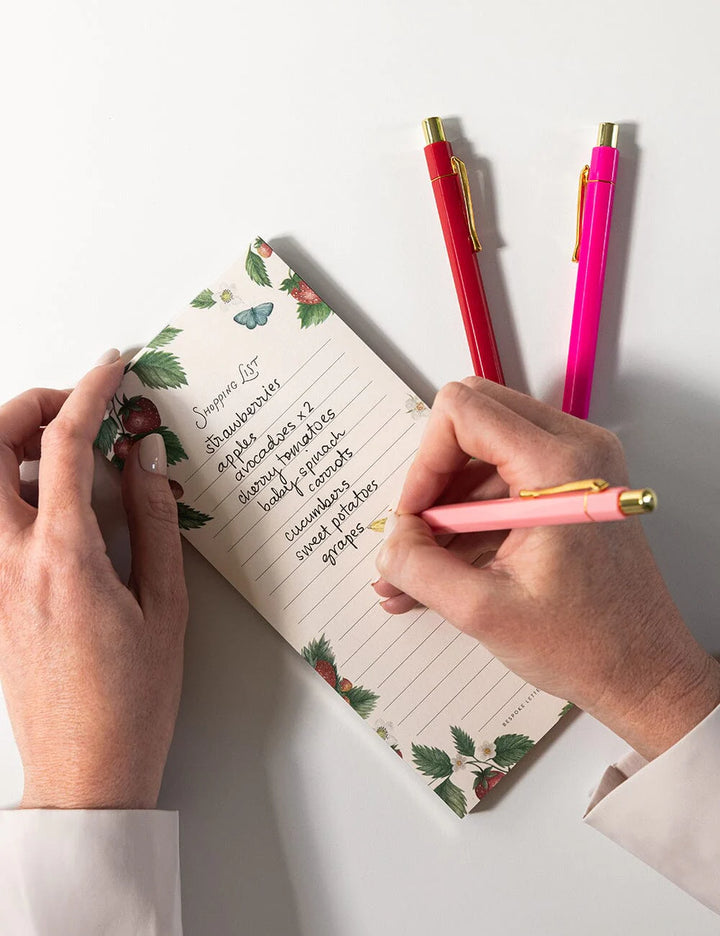 SHOPPING LIST
strawberries
apples
avocadoes x 2
cherry tomatoes
baby spinach
carrots
cucumbers
sweet potatoes
grapes
BESPOKE LETTE